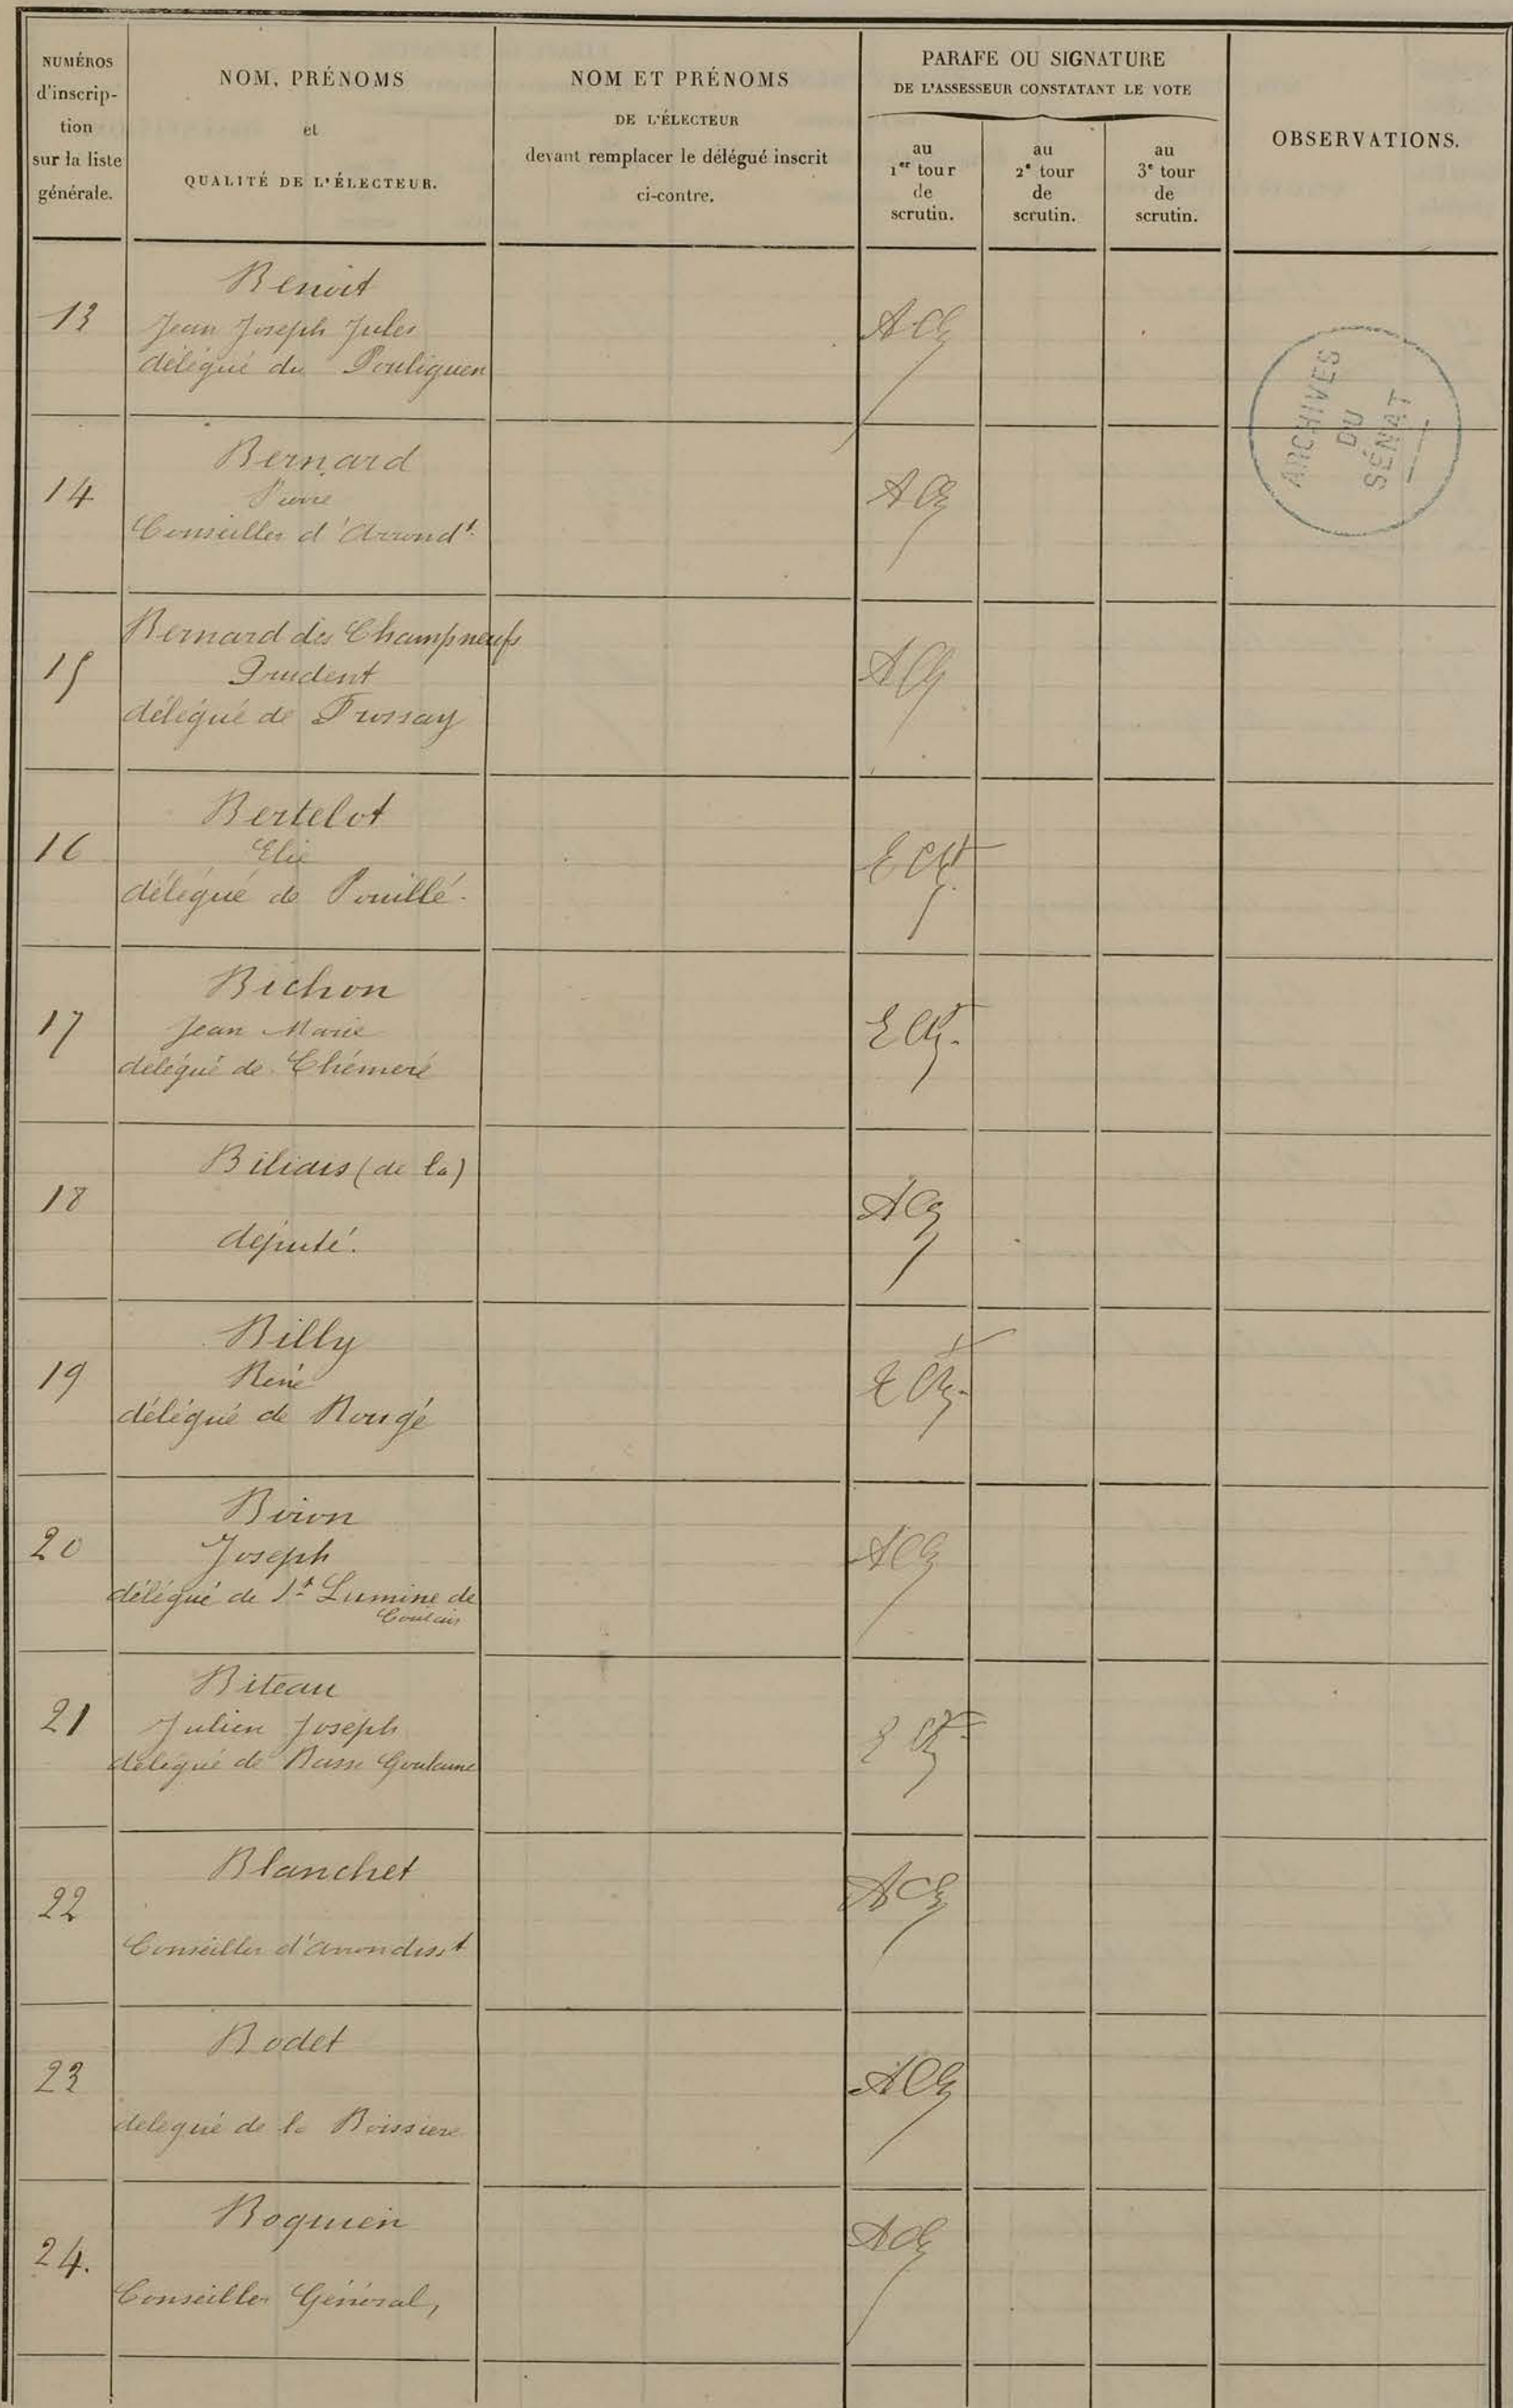 NUMÉROS
d'inscrip-
tion
sur la liste
générale.
NOM, PRÉNOMS
et
QUALITÉ DE L'ÉLECTEUR.
NOM ET PRÉNOMS
DE L'ÉLECTEUR
devant remplacer le délégué inscrit
ci-contre.
PARAFE OU SIGNATURE
DE L'ASSESSEUR CONSTATANT LE VOTE
au
1er tour
de
scrutin.
au
2e tour
de
scrutin.
au
3e tour
de
scrutin.
OBSERVATIONS.
13
Benoit
Jean Joseph Jules
délégué du Pouliguen
ARCHIVES
DU
SÉNAT
14
Bernard
Pierre
Conseiller d'Arrondt.
15
Bernard des Champneufs
Prudent
délégué de Frossay
16
Bertelot
Elie
délégué de Pouillé.
17
Bichon
Jean Marie
délégué de Chémeré
18
Biliais (de la)
député.
19
Billy
René
délégué de Rougé
20
Biron
Joseph
délégué de St Lumine de
Coutais
21
Biteau
Julien Joseph
délégué de Basse Goulaine
22
Blanchet
Conseiller d'arrondisst
23
Bodet
delegué de la Boissiere
24.
Boquien
Conseiller Général,